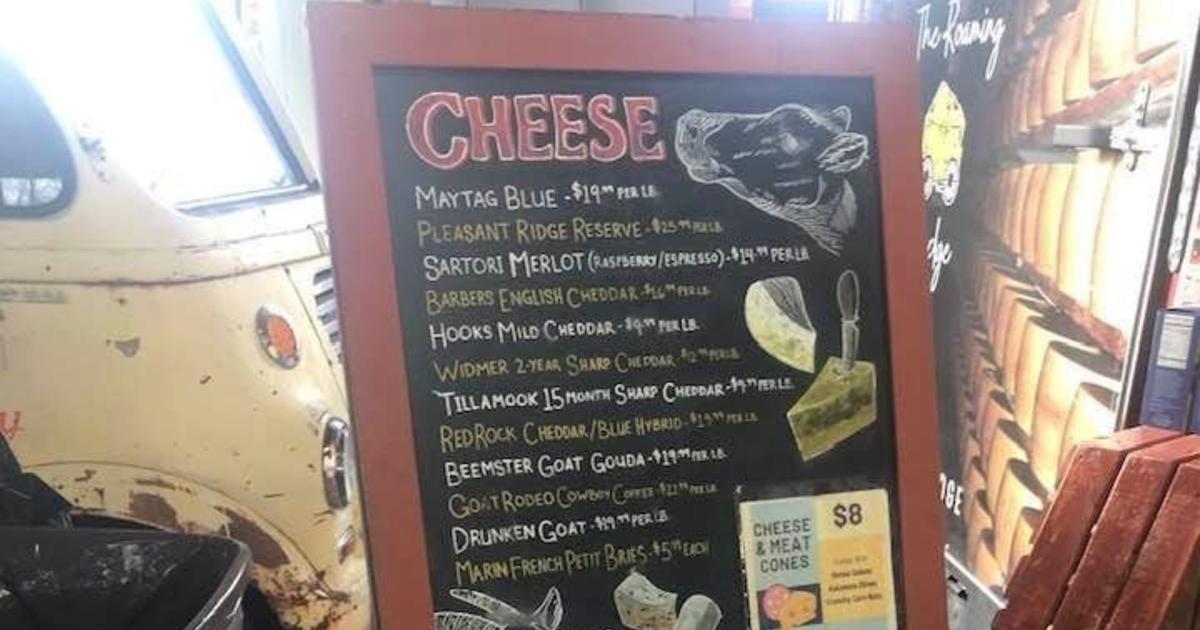 CHEESE
MAYTAG BLUE - $19.99 PER LB.
PLEASANT RIDGE RESERVE - $25.99 PER LB.
SARTORI MERLOT (RASPBERRY/ESPRESSO) - $14.99 PER LB
BARBERS ENGLISH CHEDDAR - $16.99 PER LB.
HOOKS MILD CHEDDAR - $9.99 PER LB.
WIDMER 2-YEAR SHARP CHEDDAR - $12.99 PER LB.
TILLAMOOK 15 MONTH SHARP CHEDDAR - $9.99 PER LB.
RED ROCK CHEDDAR/BLUE HYBRID - $19.99 PER LB.
BEEMSTER GOAT GOUDA - $19.99 PER LB.
GOAT RODEO COWBOY COFFEE - $22.99 PER LB.
DRUNKEN GOAT - $19.99 PER LB.
MARIN FRENCH PETIT BRIES - $5.99 EACH
CHEESE
& MEAT
CONES
$8
The Roaming